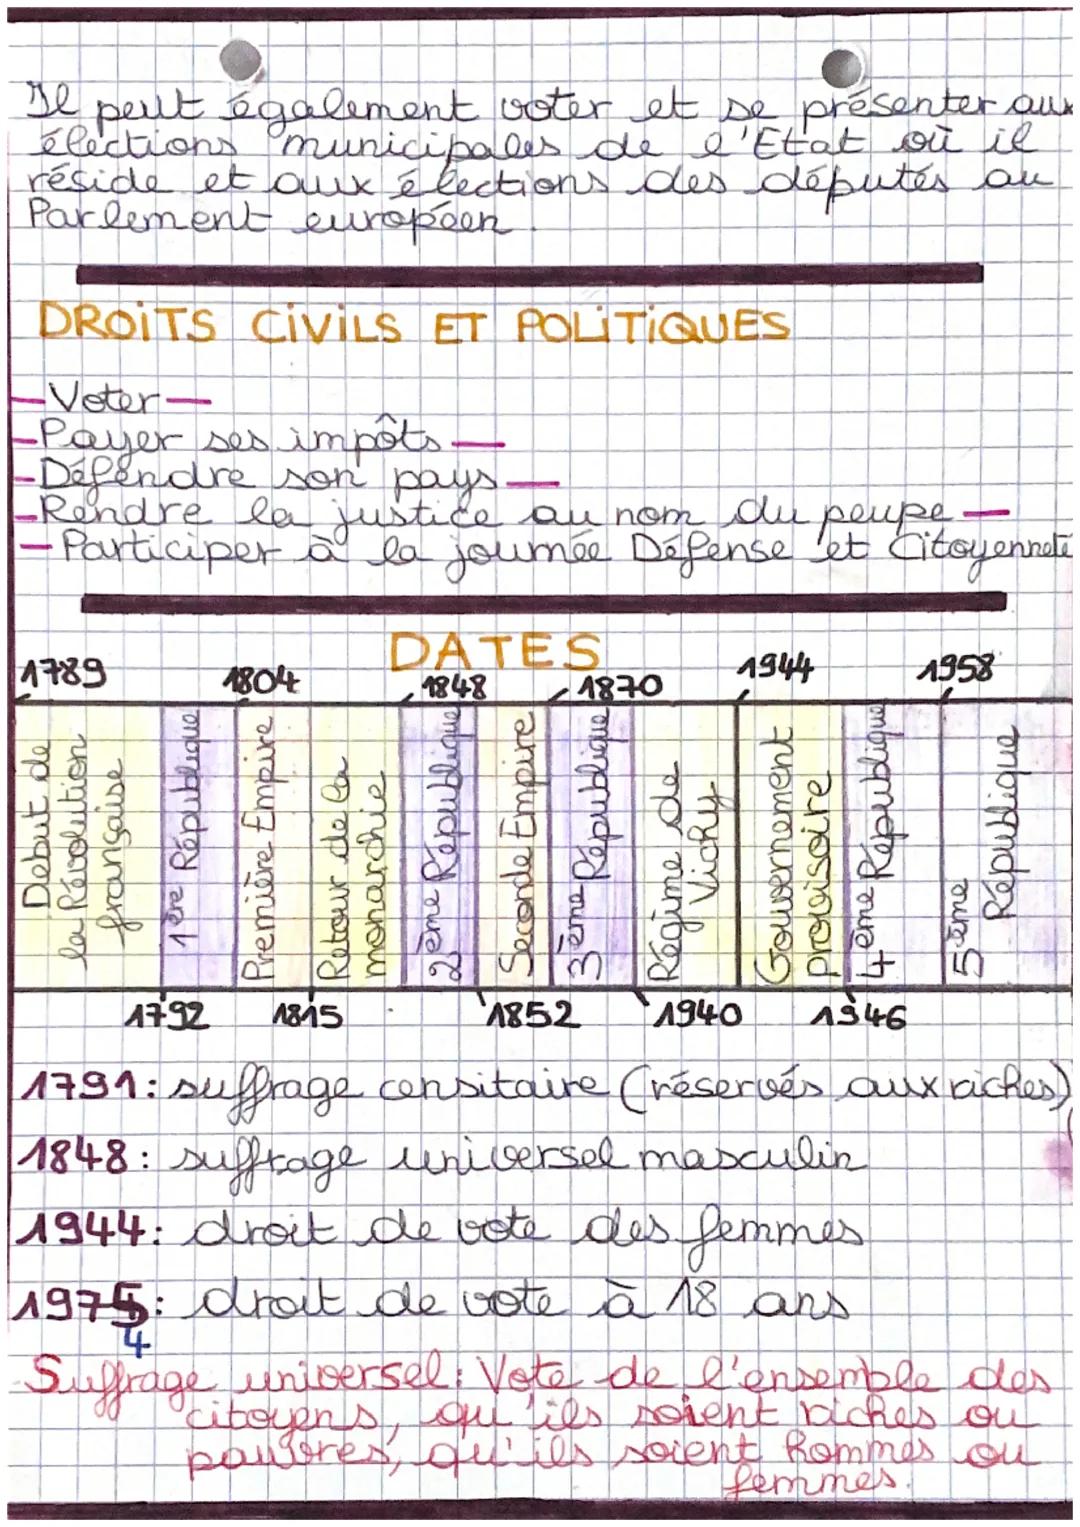 Il peut également voter et se présenter aux
élections municipales de l'Etat où il
réside et aux élections des députés au
Parlement européen.
DROITS CIVILS ET POLITIQUES
- Voter -
- Payer ses impôts -
- Défendre son pays -
- Rendre la justice au nom du peupe -
- Participer à la journée Défense et Citoyenneté
DATES
1789 1804 1848 1870 1944 1958
Debut de
la Révolution
française
1ère République
Première Empire
Retour de la
monarchie
2ème République
Seconde Empire
3ème République
Régime de
Vichy
Gouvernement
provisoire
4ème République
5ème
République
1792 1815 1852 1940 1946
1791: suffrage censitaire (réservés aux riches)
1848: suffrage universel masculin
1944: droit de vote des femmes
1975: droit de vote à 18 ans
4
Suffrage universel: Vote de l'ensemble des
citoyens, qu'ils soient riches ou
pauvres, qu'ils soient hommes ou
femmes.